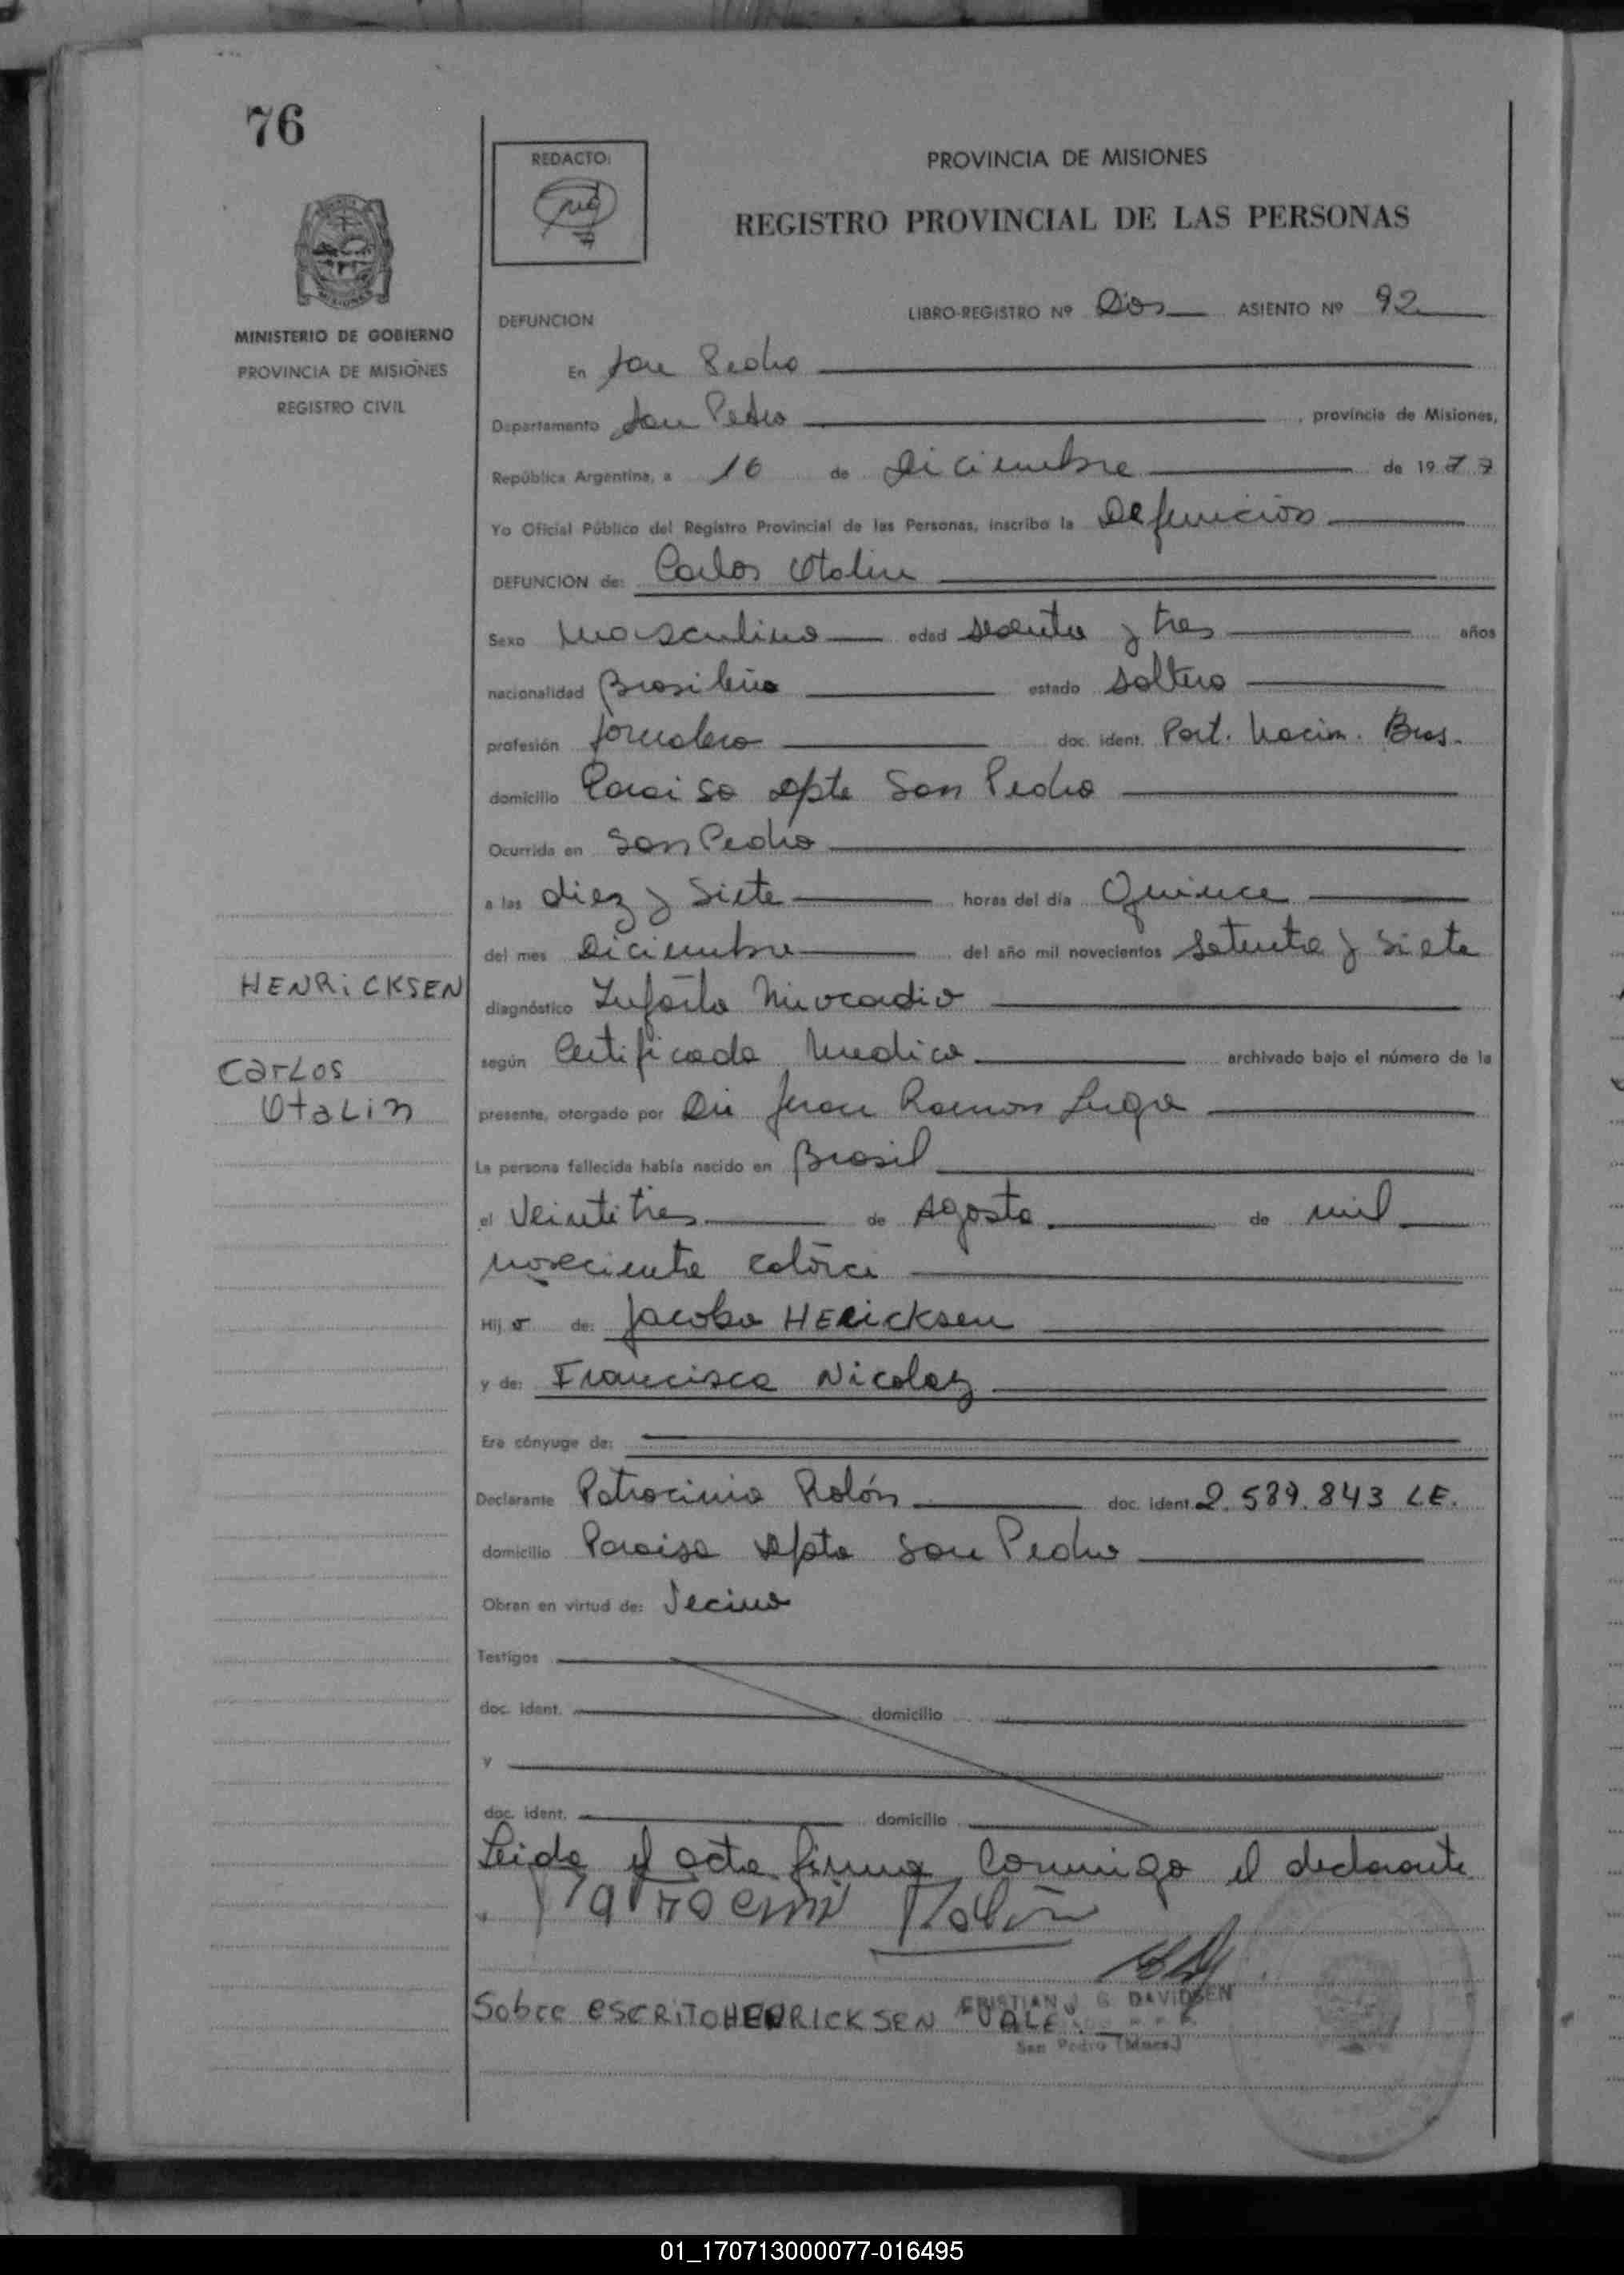 76
REDACTO:
PROVINCIA DE MISIONES
REGISTRO PROVINCIAL DE LAS PERSONAS
MINISTERIO DE GOBIERNO
PROVINCIA DE MISIONES
REGISTRO CIVIL
DEFUNCION
LIBRO-REGISTRO Nº Dos ASIENTO Nº 92
En San Pedro
Departamento San Pedro, provincia de Misiones,
República Argentina, a 16 de Diciembre de 1977
Yo Oficial Público del Registro Provincial de las Personas, inscribo la Defunción
DEFUNCION de: Carlos Otalin
Sexo Masculino edad sesenta y tres años
nacionalidad Brasileña estado soltero
profesión Jornalero doc. ident. Part. Nacim. Bras.
domicilio Paraiso Dpto San Pedro
Ocurrida en San Pedro
a las diez y Siete horas del día Quince
del mes Diciembre del año mil novecientos setenta y siete
HENRiCKSEN
diagnóstico Infarto Miocardio
según Certificado Medico archivado bajo el número de la
Carlos
Otalin
presente, otorgado por Dr Juan Ramon Lugo
La persona fallecida había nacido en Brasil
el Veintitres de Agosto de mil
novecientos catorce
Hijo de: Jacobo HERicksen
y de: Francisca Nicolaz
Era cónyuge de:
Declarante Patrocinio Rolón doc. ident. 2.589.843 LE.
domicilio Paraiso Dpto San Pedro
Obran en virtud de: Vecino
Testigos
doc. ident. domicilio
y
doc. ident. domicilio
Leida el acta firma conmigo el declarante
Patrocini Rolón
CRISTIAN J. G. DAVIDSEN
Sobre escrito HENRICKSEN VALE.
San Pedro (Mnes.)
01_170713000077-016495